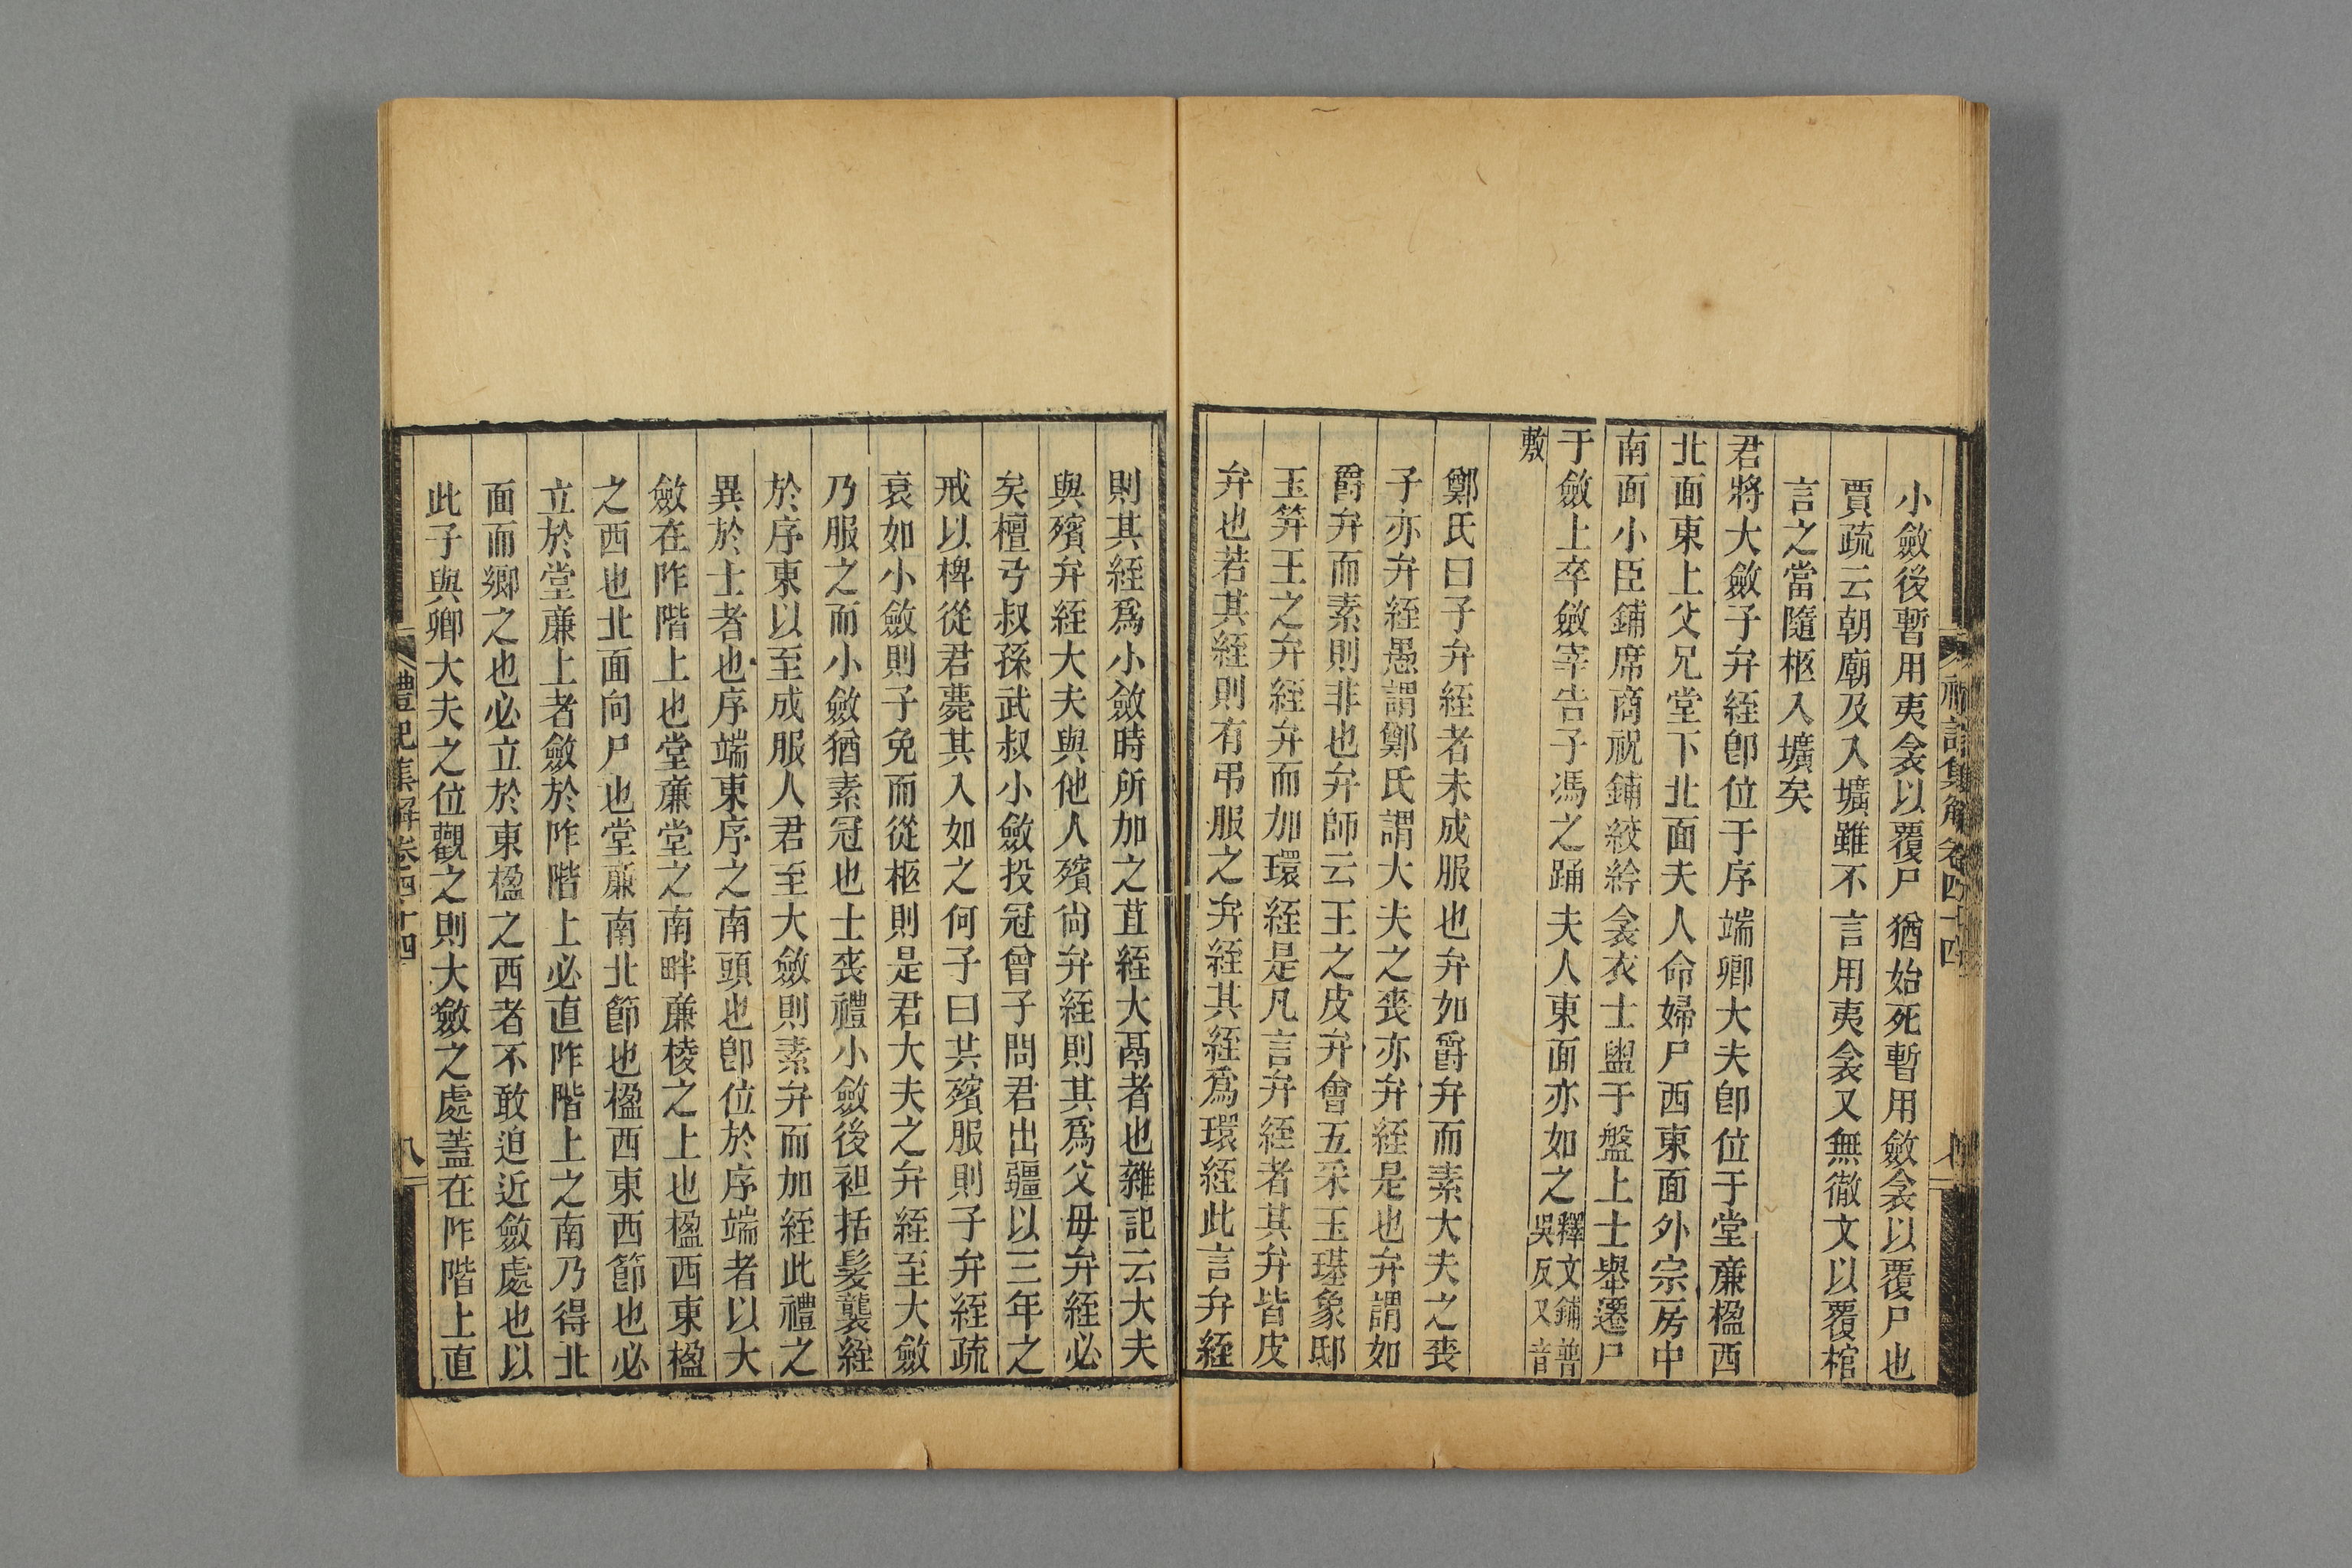 小斂後暫用夷衾以覆尸猶始死暫用斂衾以覆尸也
賈疏云朝廟及入壙雖不言用夷衾又無徹文以覆棺
言之當隨柩入壙矣
君將大斂子弁絰卽位于序端卿大夫卽位于堂廉楹西
北面東上父兄堂下北面夫人命婦尸西東面外宗房中
南面小臣鋪席商祝鋪絞紟衾衣士盥于盤上士舉遷尸
于斂上卒斂宰告子馮之踊夫人東面亦如之釋文鋪普吳反又音
敷
鄭氏曰子弁絰者未成服也弁如爵弁而素大夫之喪
子亦弁絰愚謂鄭氏謂大夫之喪亦弁絰是也弁謂如
爵弁而素則非也弁師云王之皮弁會五采玉璂象邸
玉笄王之弁絰弁而加環絰是凡言弁絰者其弁皆皮
弁也若其絰則有弔服之弁絰其絰爲環絰此言弁絰
則其絰爲小斂時所加之苴絰大鬲者也雜記云大夫
與殯弁絰大夫與他人殯尙弁絰則其爲父母弁絰必
矣檀弓叔孫武叔小斂投冠曾子問君出疆以三年之
戒以椑從君薨其入如之何子曰共殯服則子弁絰疏
衰如小斂則子免而從柩則是君大夫之弁絰至大斂
乃服之而小斂猶素冠也士喪禮小斂後袒括髮襲絰
於序東以至成服人君至大斂則素弁而加絰此禮之
異於士者也序端東序之南頭也卽位於序端者以大
斂在阼階上也堂廉堂之南畔廉棱之上也楹西東楹
之西也北面向尸也堂廉南北節也楹西東西節也必
立於堂廉上者斂於阼階上必直阼階上之南乃得北
面而鄉之也必立於東楹之西者不敢迫近斂處也以
此子與卿大夫之位觀之則大斂之處蓋在阼階上直
禮記集解卷四十四
八